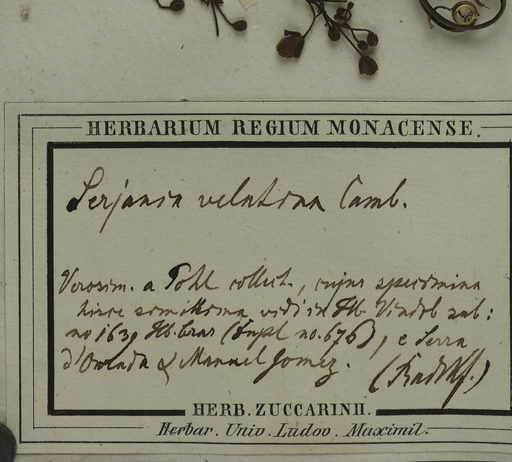 HERBARIUM REGIUM MONACENSE.
Serjania velutina Camb.
Verosim. a Pohl collect., cujus specimina
huic simillima vidi in Hb Vindob sub:
no 163, Hb. bras (Dupl no. 676), e Serra
d'Ourada & Manuel Gomez. (Radlkf.)
HERB. ZUCCARINII.
Herbar. Univ. Ludov. Maximil.